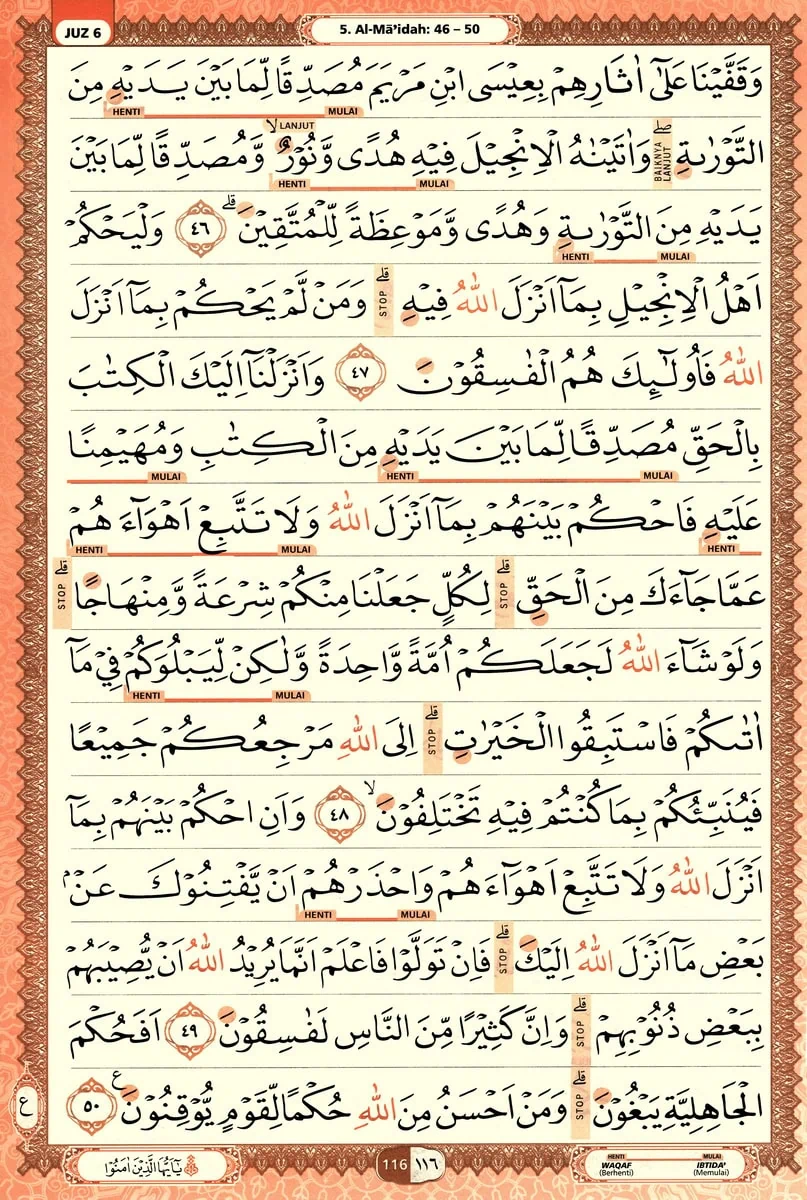 JUZ 6
5. Al-Mā'idah: 46 – 50
وَقَفَّيْنَا عَلٰٓى اٰثَارِهِمْ بِعِيْسَى ابْنِ مَرْيَمَ مُصَدِّقًا لِّمَا بَيْنَ يَدَيْهِ مِنَ
HENTI MULAI
التَّوْرٰىةِ ۖ وَاٰتَيْنٰهُ الْاِنْجِيْلَ فِيْهِ هُدًى وَّنُوْرٌۙ وَّمُصَدِّقًا لِّمَا بَيْنَ
BAIKNYA LANJUT
LANJUT
HENTI MULAI
يَدَيْهِ مِنَ التَّوْرٰىةِ وَهُدًى وَّمَوْعِظَةً لِّلْمُتَّقِيْنَۗ ٤٦ وَلْيَحْكُمْ
HENTI MULAI
اَهْلُ الْاِنْجِيْلِ بِمَآ اَنْزَلَ اللّٰهُ فِيْهِۗ وَمَنْ لَّمْ يَحْكُمْ بِمَآ اَنْزَلَ
STOP
اللّٰهُ فَاُولٰۤىِٕكَ هُمُ الْفٰسِقُوْنَ ٤٧ وَاَنْزَلْنَآ اِلَيْكَ الْكِتٰبَ
بِالْحَقِّ مُصَدِّقًا لِّمَا بَيْنَ يَدَيْهِ مِنَ الْكِتٰبِ وَمُهَيْمِنًا
MULAI HENTI MULAI
عَلَيْهِ فَاحْكُمْ بَيْنَهُمْ بِمَآ اَنْزَلَ اللّٰهُ وَلَا تَتَّبِعْ اَهْوَاۤءَهُمْ
HENTI MULAI HENTI
عَمَّا جَاۤءَكَ مِنَ الْحَقِّۗ لِكُلٍّ جَعَلْنَا مِنْكُمْ شِرْعَةً وَّمِنْهَاجًاۗ
STOP STOP
وَلَوْ شَاۤءَ اللّٰهُ لَجَعَلَكُمْ اُمَّةً وَّاحِدَةً وَّلٰكِنْ لِّيَبْلُوَكُمْ فِيْ مَآ
HENTI MULAI
اٰتٰىكُمْ فَاسْتَبِقُوا الْخَيْرٰتِۗ اِلَى اللّٰهِ مَرْجِعُكُمْ جَمِيْعًا
STOP
فَيُنَبِّئُكُمْ بِمَا كُنْتُمْ فِيْهِ تَخْتَلِفُوْنَۙ ٤٨ وَاَنِ احْكُمْ بَيْنَهُمْ بِمَآ
اَنْزَلَ اللّٰهُ وَلَا تَتَّبِعْ اَهْوَاۤءَهُمْ وَاحْذَرْهُمْ اَنْ يَّفْتِنُوْكَ عَنْۢ
HENTI MULAI
بَعْضِ مَآ اَنْزَلَ اللّٰهُ اِلَيْكَۗ فَاِنْ تَوَلَّوْا فَاعْلَمْ اَنَّمَا يُرِيْدُ اللّٰهُ اَنْ يُّصِيْبَهُمْ
STOP
بِبَعْضِ ذُنُوْبِهِمْۗ وَاِنَّ كَثِيْرًا مِّنَ النَّاسِ لَفٰسِقُوْنَ ٤٩ اَفَحُكْمَ
STOP
الْجَاهِلِيَّةِ يَبْغُوْنَۗ وَمَنْ اَحْسَنُ مِنَ اللّٰهِ حُكْمًا لِّقَوْمٍ يُّوْقِنُوْنَ ࣖ ٥٠
STOP
ع
يٰٓاَيُّهَا الَّذِيْنَ اٰمَنُوْا
116 ١١٦
HENTI MULAI
WAQAF IBTIDA'
(Berhenti) (Memulai)